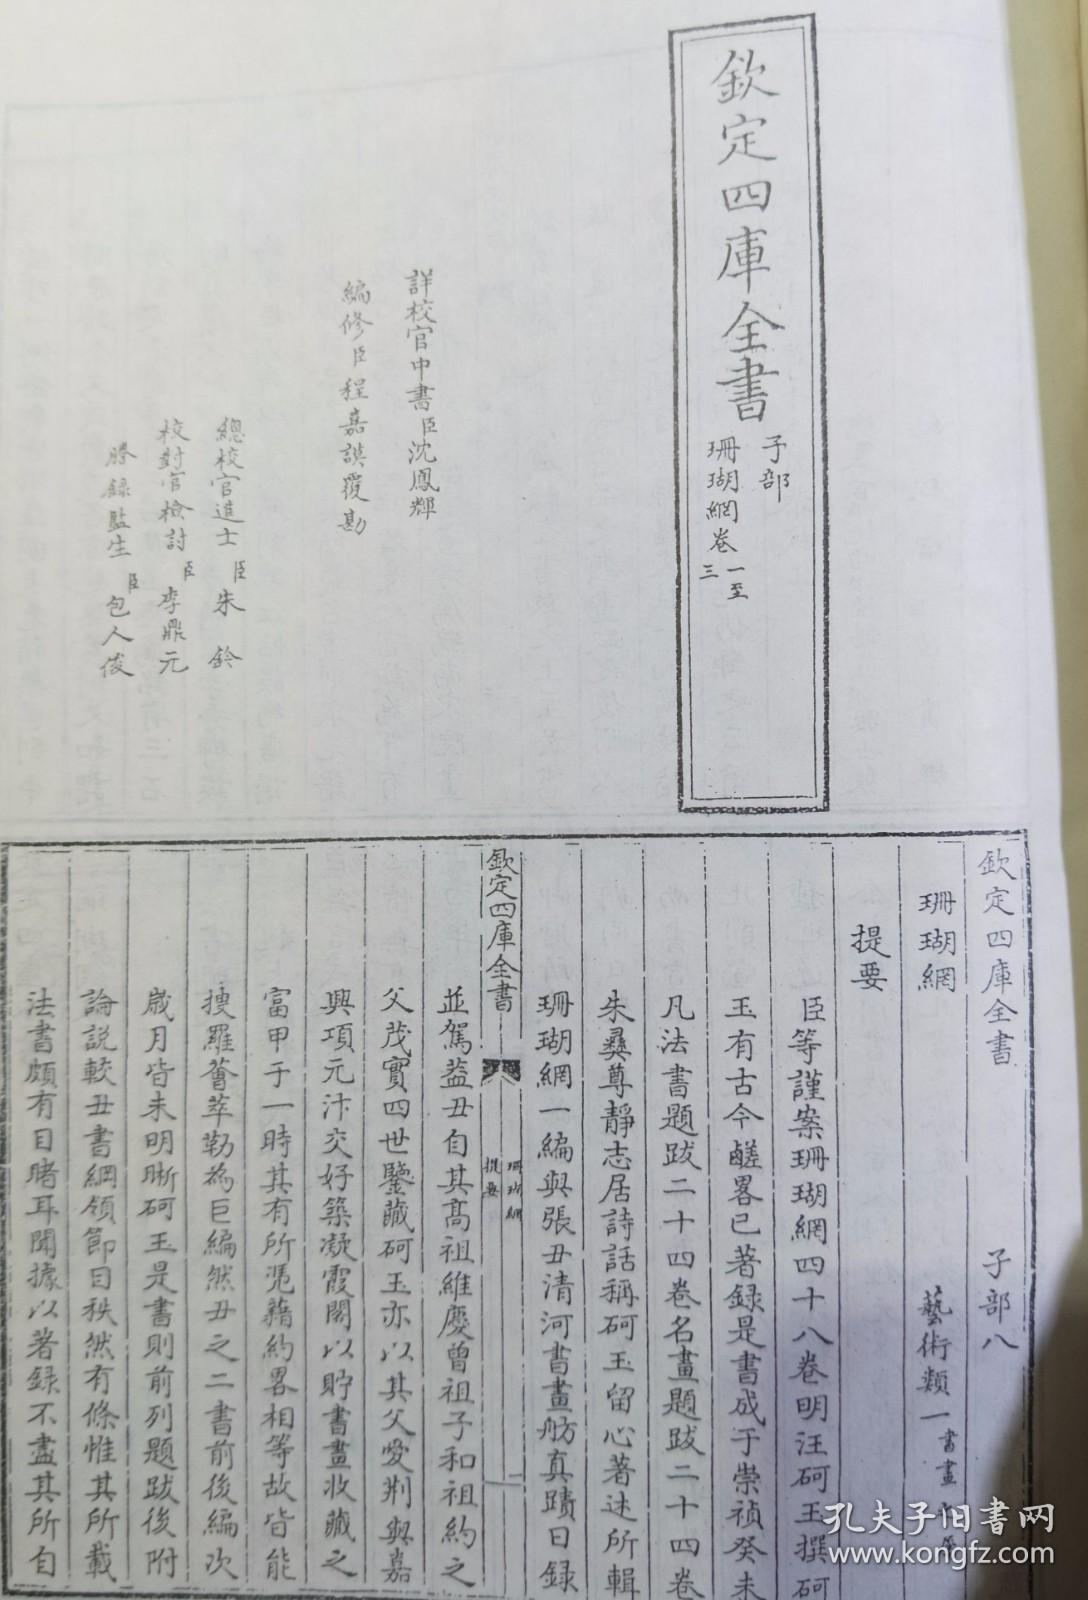 欽定四庫全書
子部
珊瑚網卷一至
三
詳校官中書臣沈鳳輝
編修臣程嘉謨覆勘
總校官進士臣朱鈐
校對官檢討臣李鼎元
謄錄監生臣包人俊
欽定四庫全書 子部八
珊瑚網 藝術類一書畫之屬
提要
臣等謹案珊瑚網四十八卷明汪砢玉撰砢
玉有古今鹺畧已著録是書成于崇禎癸未
凡法書題跋二十四卷名畫題跋二十四卷
朱彞尊靜志居詩話稱砢玉留心著述所輯
珊瑚網一編與張丑清河書畫舫真蹟日録
欽定四庫全書
珊瑚網
提要
一
並駕葢丑自其髙祖維慶曾祖子和祖約之
父茂實四世鑒藏砢玉亦以其父愛荆與嘉
興項元汴交好築凝霞閣以貯書畫收藏之
富甲于一時其有所憑藉約畧相等故皆能
搜羅薈萃勒為巨編然丑之二書前後編次
嵗月皆未明晰砢玉是書則前列題跋後附
論說較丑書綱領節目秩然有條惟其所載
法書頗有目睹耳聞據以著録不盡其所自
孔夫子旧书网
www.kongfz.com